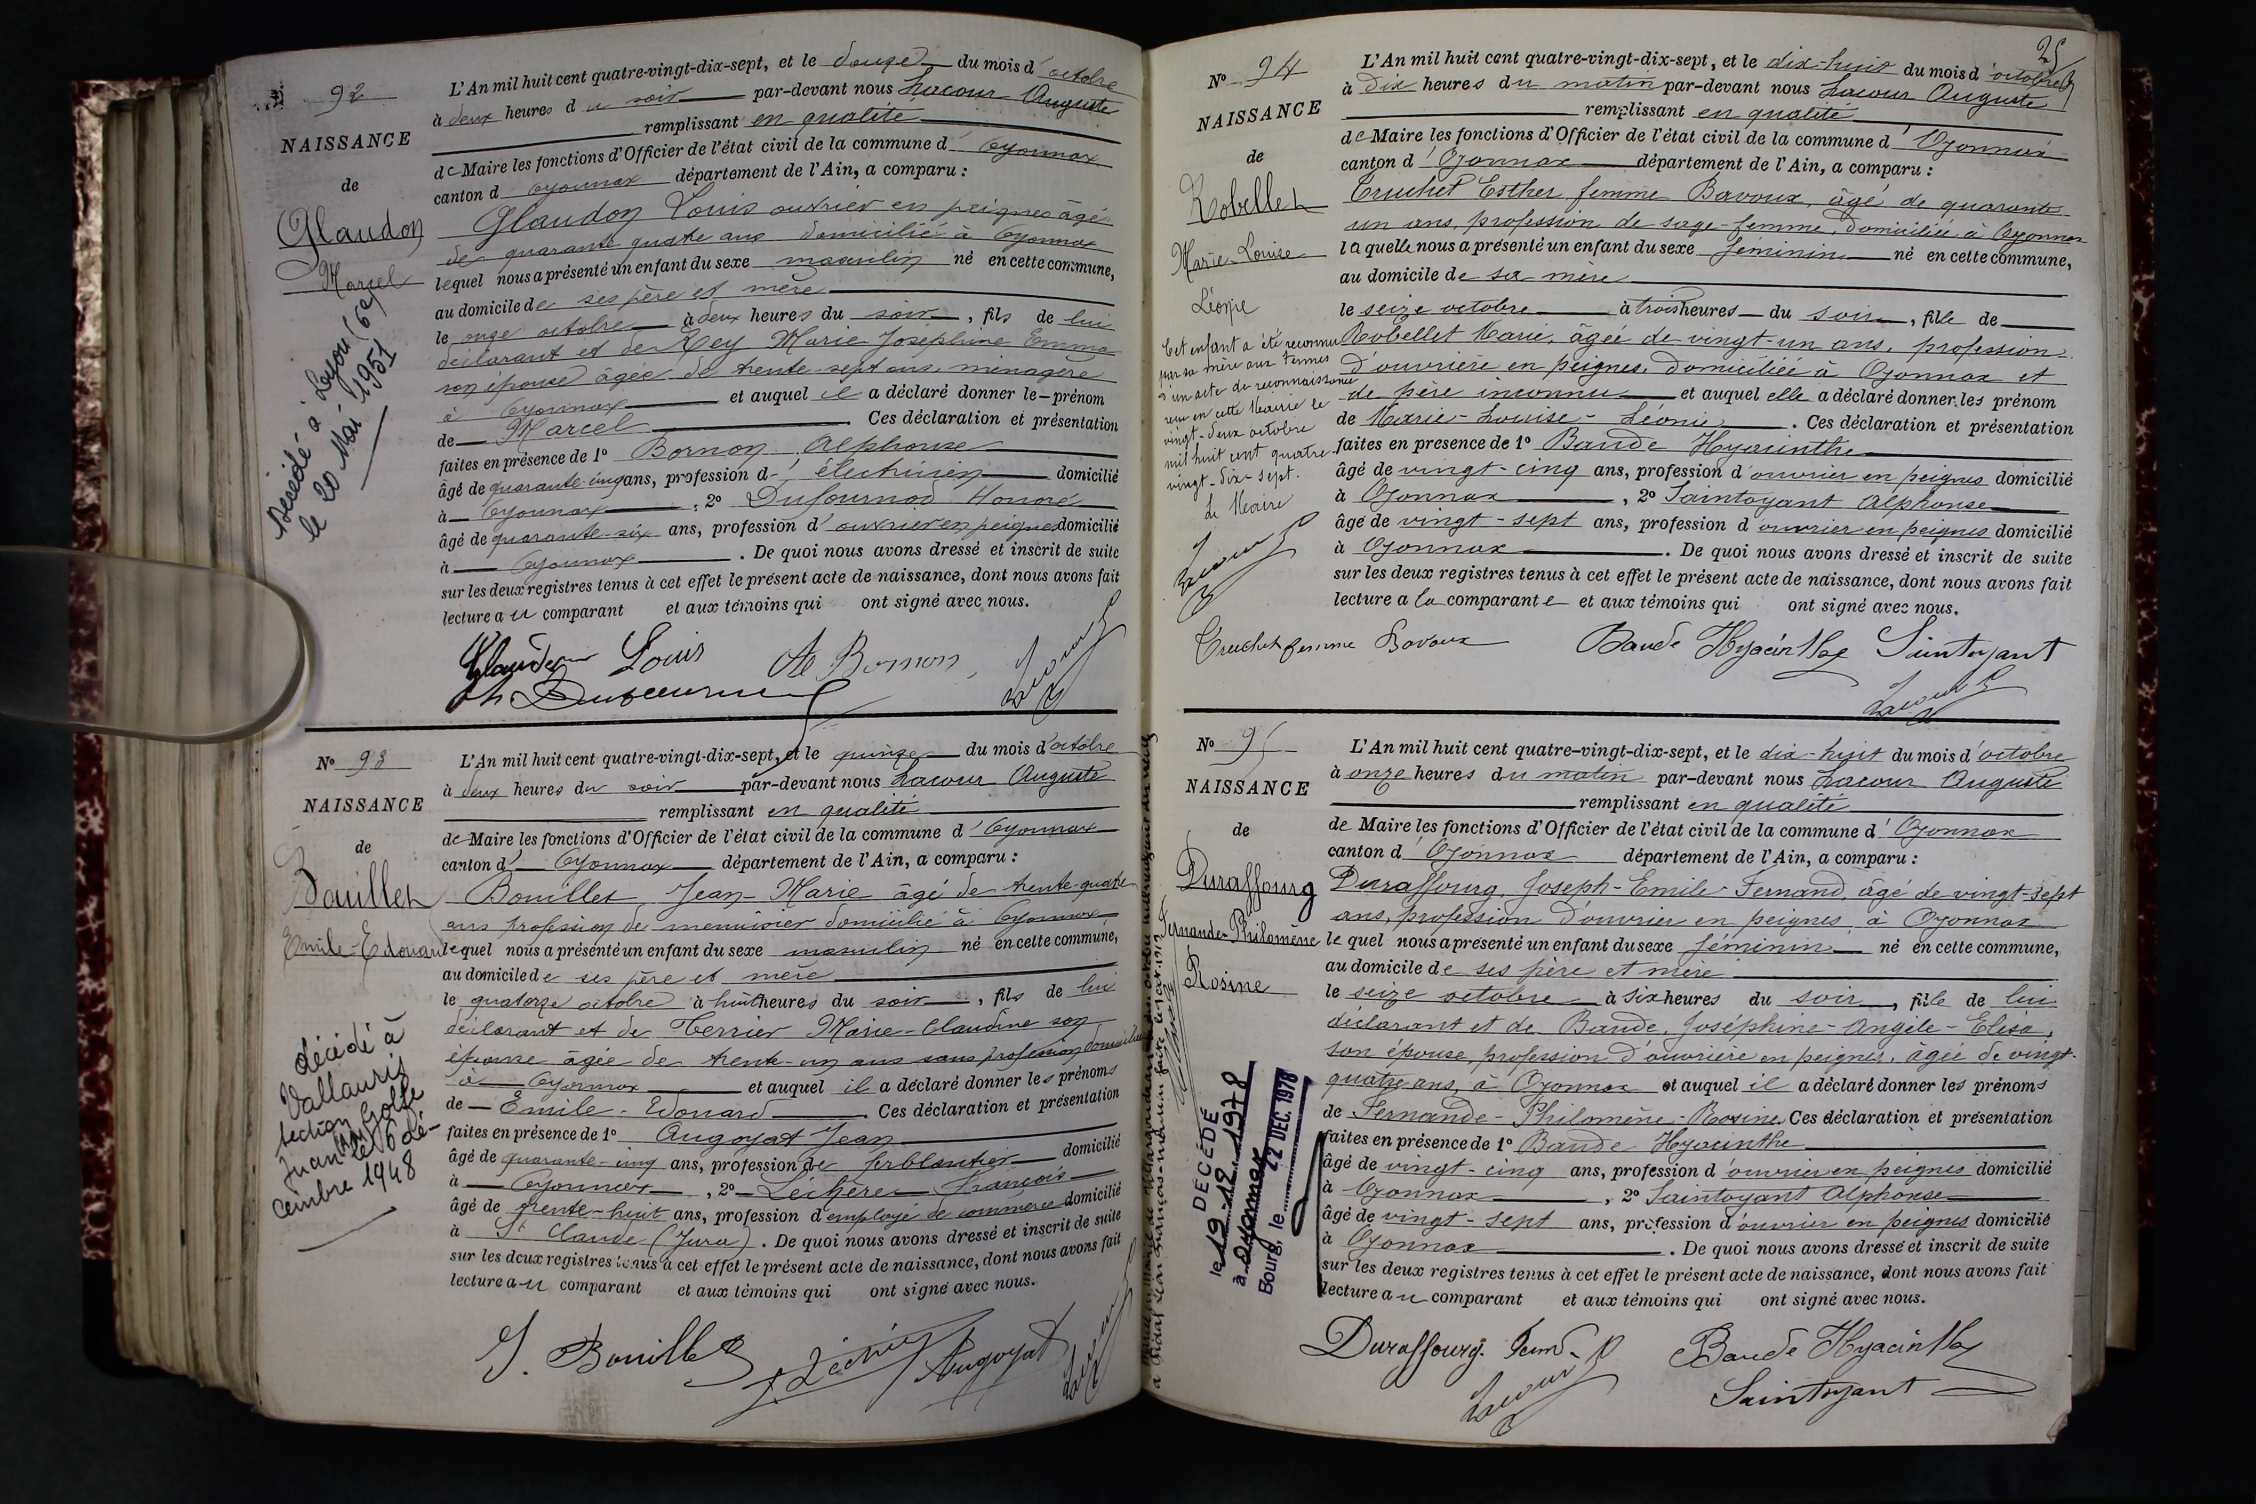 92
NAISSANCE
de
Glaudon
Marcel
Décédé à Lyon (6e)
le 20 Mai 1951
L'An mil huit cent quatre-vingt-dix-sept, et le douze du mois d'octobre
à deux heures du soir par-devant nous Lacour Auguste
remplissant en qualité
de Maire les fonctions d'Officier de l'état civil de la commune d'Oyonnax
canton d Oyonnax département de l'Ain, a comparu :
Glaudon Louis ouvrier en peignes âgé
de quarante quatre ans domicilié à Oyonnax
lequel nous a présenté un enfant du sexe masculin né en cette commune,
au domicile de ses père et mère
le onze octobre à deux heures du soir, fils de lui
déclarant et de Rey Marie Joséphine Emma
son épouse âgée de trente-sept ans, ménagère
à Oyonnax et auquel il a déclaré donner le prénom
de Marcel Ces déclaration et présentation
faites en présence de 1º Bornon Alphonse
âgé de quarante-cinq ans, profession d'électricien domicilié
à Oyonnax, 2º Dufournod Honoré
âgé de quarante-six ans, profession d'ouvrier en peignes domicilié
à Oyonnax. De quoi nous avons dressé et inscrit de suite
sur les deux registres tenus à cet effet le présent acte de naissance, dont nous avons fait
lecture au comparant et aux témoins qui ont signé avec nous.
Glaudon Louis Al Bornon
Lacour
Nº 93
NAISSANCE
de
Bouillet
Emile-Edouard
décédé à
Vallauris
section
Juan les Golfe
le 6 dé-
cembre 1948
L'An mil huit cent quatre-vingt-dix-sept, et le quinze du mois d'octobre
à deux heures du soir par-devant nous Lacour Auguste
remplissant en qualité
de Maire les fonctions d'Officier de l'état civil de la commune d'Oyonnax
canton d'Oyonnax département de l'Ain, a comparu :
Bouillet Jean-Marie âgé de trente-quatre
ans profession de menuisier domicilié à Oyonnax
lequel nous a présenté un enfant du sexe masculin né en cette commune,
au domicile de ses père et mère
le quatorze octobre à huit heures du soir, fils de lui
déclarant et de Terrier Marie-Claudine son
épouse âgée de trente-un ans sans profession domiciliée
à Oyonnax et auquel il a déclaré donner les prénoms
de Emile-Edouard. Ces déclaration et présentation
faites en présence de 1º Augoyat Jean
âgé de quarante-cinq ans, profession de ferblantier domicilié
à Oyonnax, 2º Léchère François
âgé de trente-huit ans, profession d'employé de commerce domicilié
à St Claude (Jura). De quoi nous avons dressé et inscrit de suite
sur les deux registres tenus à cet effet le présent acte de naissance, dont nous avons fait
lecture au comparant et aux témoins qui ont signé avec nous.
J. Bouillet Augoyat
Lacour
25
Nº 94
NAISSANCE
de
Robellet
Marie-Louise
Léonie
Cet enfant a été reconnu
par sa mère aux termes
d'un acte de reconnaissance
reçu en cette Mairie le
vingt-deux octobre
mil huit cent quatre-
vingt-dix-sept.
Le Maire
Lacour
L'An mil huit cent quatre-vingt-dix-sept, et le dix-huit du mois d'octobre
à dix heures du matin par-devant nous Lacour Auguste
remplissant en qualité
de Maire les fonctions d'Officier de l'état civil de la commune d'Oyonnax
canton d'Oyonnax département de l'Ain, a comparu :
Truchet Esther femme Bavoux, âgé de quarante-
un ans, profession de sage-femme, domiciliée à Oyonnax
laquelle nous a présenté un enfant du sexe féminin né en cette commune,
au domicile de sa mère
le seize octobre à trois heures du soir, fille de
Robellet Marie, âgée de vingt-un ans, profession
d'ouvrière en peignes, domiciliée à Oyonnax et
de père inconnu et auquel elle a déclaré donner les prénom
de Marie-Louise-Léonie. Ces déclaration et présentation
faites en présence de 1º Baude Hyacinthe
âgé de vingt-cinq ans, profession d'ouvrier en peignes domicilié
à Oyonnax, 2º Saintoyant Alphonse
âgé de vingt-sept ans, profession d'ouvrier en peignes domicilié
à Oyonnax. De quoi nous avons dressé et inscrit de suite
sur les deux registres tenus à cet effet le présent acte de naissance, dont nous avons fait
lecture a la comparante et aux témoins qui ont signé avec nous.
Truchet femme Bavoux Baude Hyacinthe Saintoyant
Lacour
Nº 95
NAISSANCE
de
Duraffourg
Fernande-Philomène
Rosine
DÉCÉDÉ
le 19.12.1978
à Oyonnax
Bourg, le 22 DEC. 1978
L'An mil huit cent quatre-vingt-dix-sept, et le dix-huit du mois d'octobre
à onze heures du matin par-devant nous Lacour Auguste
remplissant en qualité
de Maire les fonctions d'Officier de l'état civil de la commune d'Oyonnax
canton d'Oyonnax département de l'Ain, a comparu :
Duraffourg, Joseph-Emile-Fernand, âgé de vingt-sept
ans, profession d'ouvrier en peignes, à Oyonnax
lequel nous a présenté un enfant du sexe féminin né en cette commune,
au domicile de ses père et mère
le seize octobre à six heures du soir, fille de lui
déclarant et de Baude, Joséphine-Angèle-Elisa,
son épouse, profession d'ouvrière en peignes, âgée de vingt-
quatre ans, à Oyonnax et auquel il a déclaré donner les prénoms
de Fernande-Philomène-Rosine. Ces déclaration et présentation
faites en présence de 1º Baude Hyacinthe
âgé de vingt-cinq ans, profession d'ouvrier en peignes domicilié
à Oyonnax, 2º Saintoyant Alphonse
âgé de vingt-sept ans, profession d'ouvrier en peignes domicilié
à Oyonnax. De quoi nous avons dressé et inscrit de suite
sur les deux registres tenus à cet effet le présent acte de naissance, dont nous avons fait
lecture au comparant et aux témoins qui ont signé avec nous.
Duraffourg Fernd Baude Hyacinthe
Lacour Saintoyant